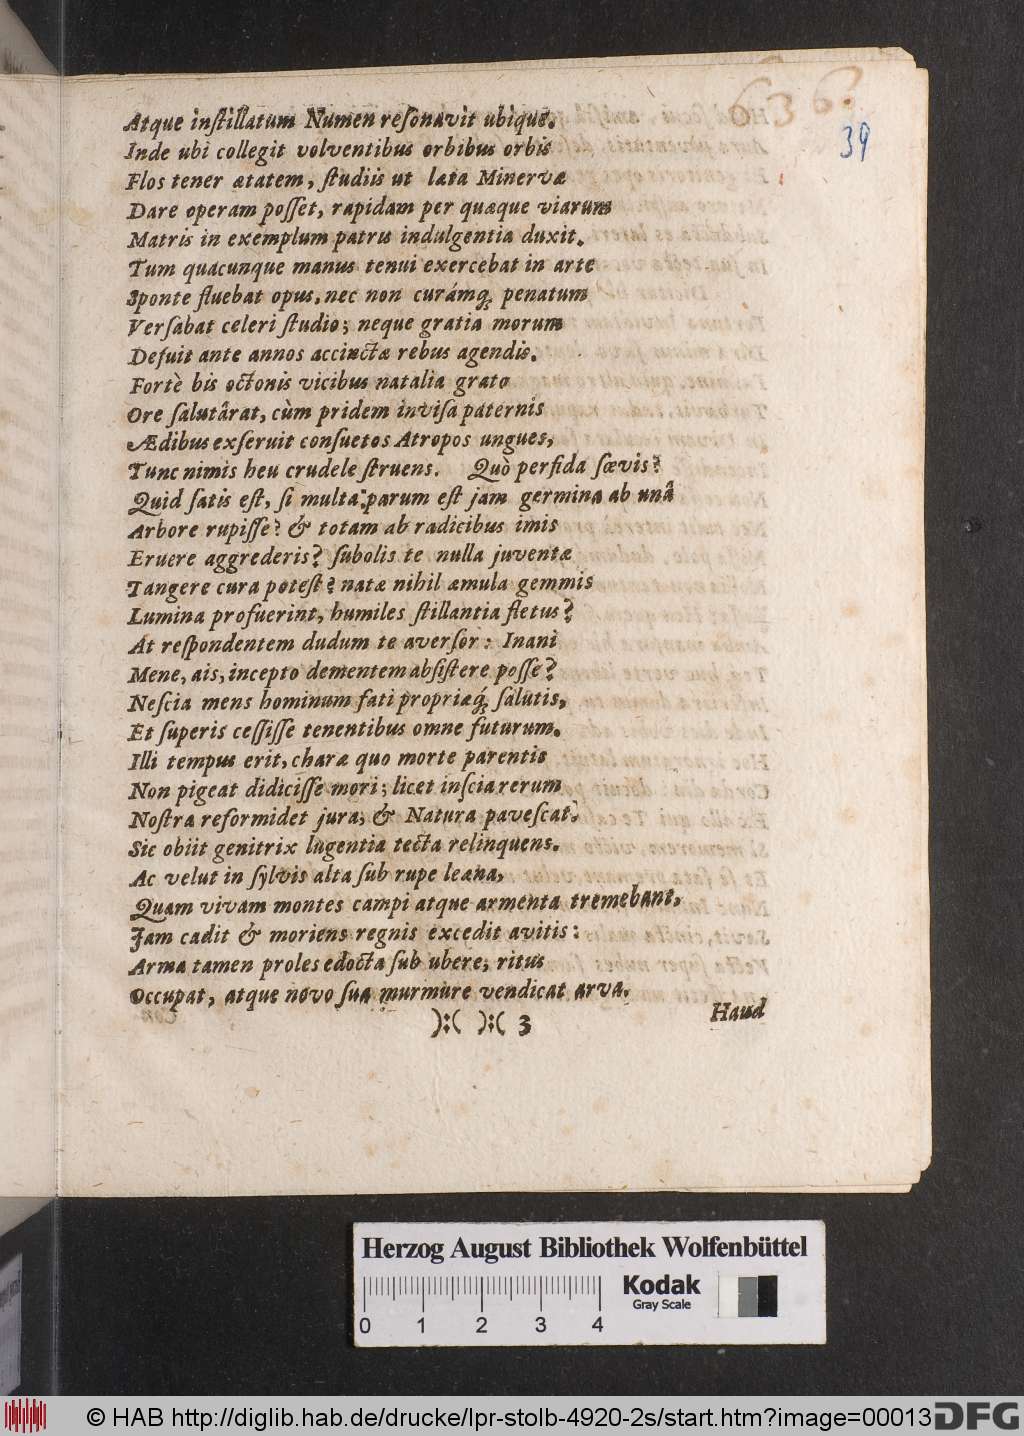 636.
39
Atque inſtillatum Numen reſonavit ubique.
Inde ubi collegit volventibus orbibus orbis
Flos tener ætatem, ſtudiis ut læta Minervæ
Dare operam poſſet, rapidam per quæque viarum
Matris in exemplum patris indulgentia duxit.
Tum quacunque manus tenui exercebat in arte
Sponte fluebat opus, nec non curámq́; penatum
Verſabat celeri ſtudio; neque gratia morum
Defuit ante annos accinctæ rebus agendis.
Fortè bis octonis vicibus natalia grato
Ore ſalutârat, cùm pridem inviſa paternis
Ædibus exſeruit conſuetos Atropos ungues,
Tunc nimis heu crudele ſtruens. Quò perfida ſævis?
Quid ſatis eſt, ſi multa: parum eſt jam germina ab unâ
Arbore rupiſſe? & totam ab radicibus imis
Eruere aggrederis? ſubolis te nulla juventæ
Tangere cura poteſt? natæ nihil æmula gemmis
Lumina profuerint, humiles ſtillantia fletus?
At reſpondentem dudum te averſor: Inani
Mene, ais, incepto dementem abſiſtere poſſe?
Neſcia mens hominum fati propriæq́; ſalutis,
Et ſuperis ceſſiſſe tenentibus omne futurum.
Illi tempus erit, charæ quo morte parentis
Non pigeat didiciſſe mori; licet inſcia rerum
Noſtra reformidet jura, & Natura paveſcat.
Sic obiit genitrix lugentia tecta relinquens.
Ac velut in ſylvis alta ſub rupe leæna,
Quam vivam montes campi atque armenta tremebant,
Jam cadit & moriens regnis excedit avitis:
Arma tamen proles edocta ſub ubere, ritus
Occupat, atque novo ſua murmure vendicat arva.
):( ):( 3
Haud
Herzog August Bibliothek Wolfenbüttel
Kodak
Gray Scale
0 1 2 3 4
© HAB http://diglib.hab.de/drucke/lpr-stolb-4920-2s/start.htm?image=00013
DFG